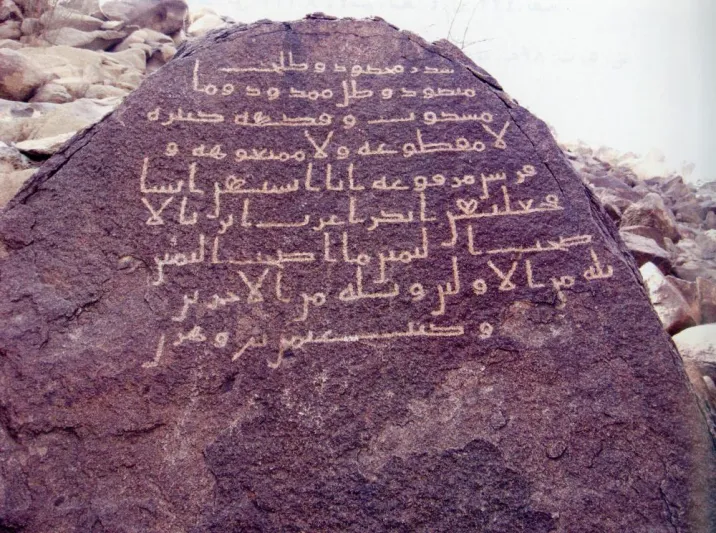 سدر مخضود وطلح
منضود وظل ممدود وما
مسكوب وفكهه كثيره
لا مقطوعه ولا ممنوعه و
فرش مرفوعه انا انشانهن انشا
فجعلنهن ابكرا عربا اتربا لا
صحب اليمين ما اصحب اليمين
ثله من الاولين وثله من الاخرين
وكتب عثمن بن وهرن